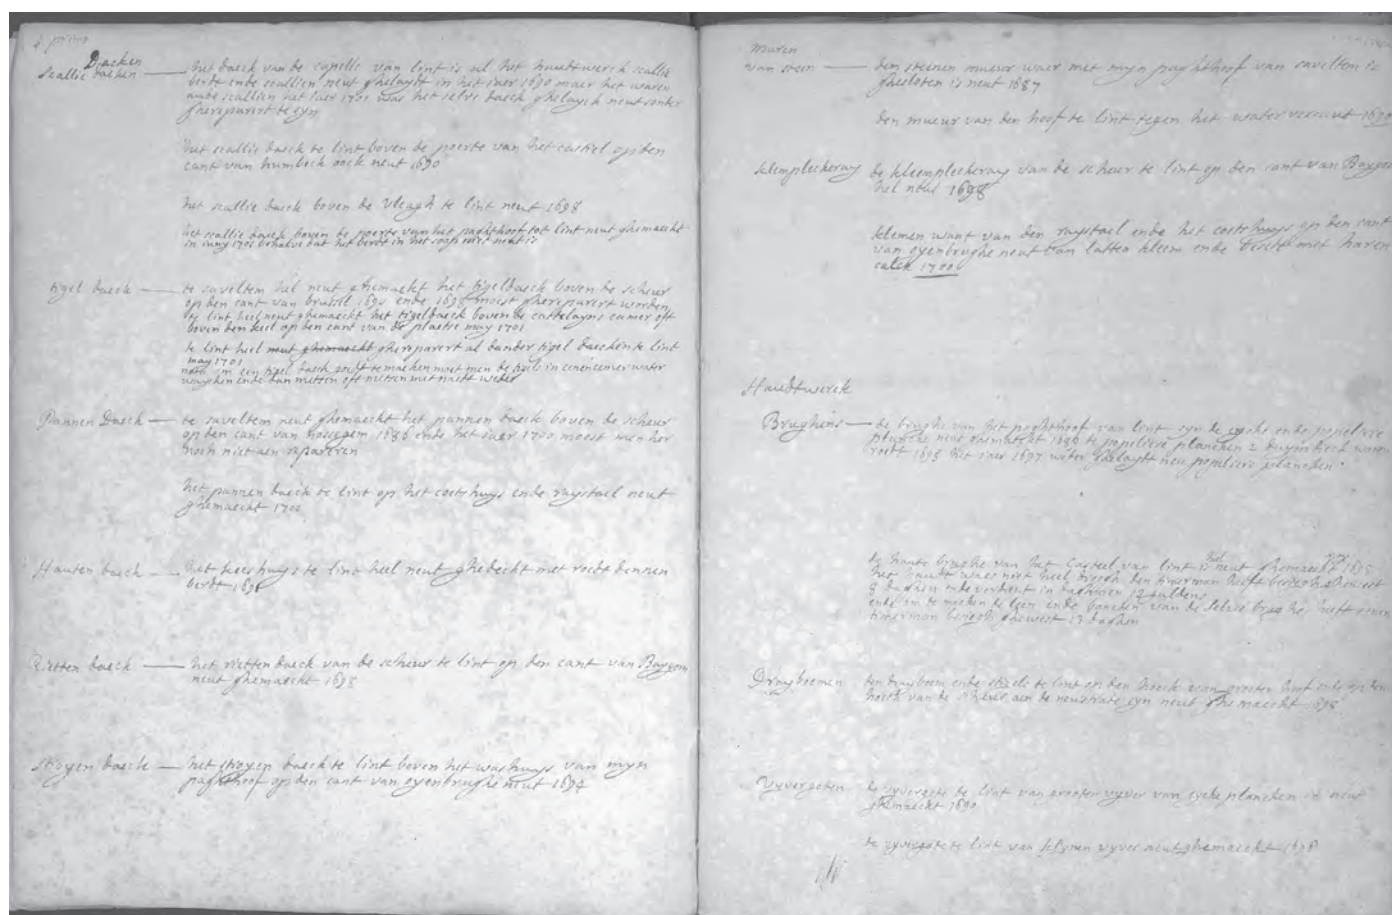 4 primo
Daeken
scallie daeken — het daeck van de capelle van lint is al het haudtwerck scallie
berdt ende scallien neut ghelaydt in het iaer 1690 maer het waren
aude scallien het iaer 1701 was het selve daeck ghelayck neut sonder
gherepareert te syn
het scallie daeck te lint boven de poerte van het casteel op den
cant van humbeck oock neut 1690
het scallie daeck boven de vleugh te lint neut 1698
het scallie daeck boven de poerte van het pachthoof tot lint neut ghemaeckt
in iuny 1701 behalve dat het berdt in het niet neut is
tigel daeck — te saveltem hel neut ghemackt het tigeldaeck boven de scheur
op den cant van brussel 1690 ende 1698 moest gherepareert worden
te lint heel neut ghemaeckt het tigeldaeck boven de castelayns camer oft
boven den keel op den cant van de plaetse may 1701
te lint heel neut ghemaeckt gherepareert al dander tigel daecken te lint
may 1701
nota om een tigel daeck te maecken moet men de tigels in eenen water
ende dan metten oft metten met weder
Pannen Daeck — te saveltem neut ghemaeckt het pannen daeck boven de scheur
op den cant van nossegem 1686 ende het iaer 1700 moest men her
noch niet aen repareren
het pannen daeck te lint op het coetshuys ende raystael neut
ghemaeckt 1700
Hauten daeck — het keeshuys te lint heel neut ghedeckt met roedt dennen
berdt 1696
Rietten daeck — het rietten daeck van de scheur te lint op den cant van Baygem
neut ghemaeckt 1698
stroyen daeck — het stroyen daeck te lint boven het washuys van myn
paghthoof op den cant van oyenbrughe neut 1694
muren
van steen — den steinen mueur waer met myn paghthoof van saveltem is
ghesloten is neut 1687
den mueur van den hoof te lint tegen het water vernut 1690
klempleckeray de kleempleckeray van de scheur te lint op den cant van Baygem
hel neut 1698
klemen want van den raystael ende het coetshuys op den cant
van oyenbrughe neut van latten kleem ende met haren
calck 1700
Haudtwerck
Brughins — de brughe van het paghthoof van lint syn de eycke ende popeliere
plancke neut ghemaeckt 1690 te popeliere plancken 2 duym dick waren
rodt 1695 het iaer 1697 weder ghelaydt neu popeliere plancken
de haute brughe van het Casteel van lint is hel neut ghemaeckt 1695
het haudt waes niet heel droogh den timerman heeft besigh ghewest
8 daghen ende verdient in daghuren 12 guldens
ende om te maecken de leen ende bancken van de selve brughe heeft eenen
timerman besigh ghewest 13 daghen
Drayboemen den drayboem ende stiels te lint op den hoeck van grooten hoof ende op den
hoeck van de scheur aen de neustrate syn neut ghemaeckt 1698
Vyvergoten de vyvergote te lint van grooten vyver van eycke plancken is neut
ghemaeckt 1690
de vyvergote te lint van klynen vyver neut ghemaeckt 1698